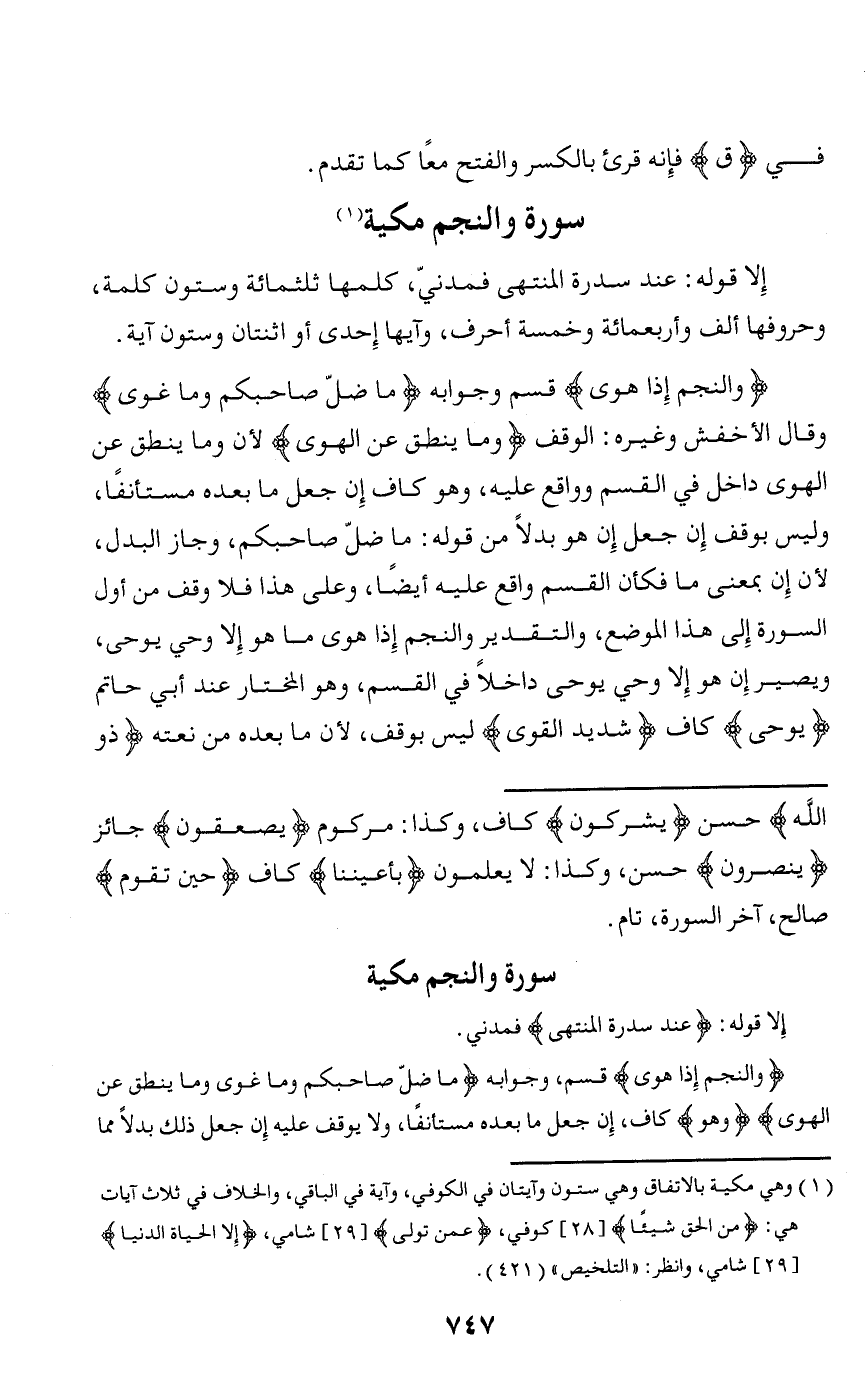 فـــي ﴿ ق ﴾ فإنه قرئ بالكسر والفتح معًا كما تقدم.
سورة والنجم مكية(١)
إلا قوله: عند سدرة المنتهى فمدنيّ، كلمها ثلثمائة وستون كلمة،
وحروفها ألف وأربعمائة وخمسة أحرف، وآيها إحدى أو اثنتان وستون آية.
﴿ والنجم إذا هوى ﴾ قسم وجوابه ﴿ ما ضلّ صاحبكم وما غوى ﴾
وقال الأخفش وغيره: الوقف ﴿ وما ينطق عن الهوى ﴾ لأن وما ينطق عن
الهوى داخل في القسم وواقع عليه، وهو كاف إن جعل ما بعده مستأنفًا،
وليس بوقف إن جعل إن هو بدلاً من قوله: ما ضلّ صاحبكم، وجاز البدل،
لأن إن بمعنى ما فكأن القسم واقع عليه أيضًا، وعلى هذا فلا وقف من أول
السورة إلى هذا الموضع، والتقدير والنجم إذا هوى ما هو إلا وحي يوحى،
ويصير إن هو إلا وحي يوحى داخلاً في القسم، وهو المختار عند أبي حاتم
﴿ يوحى ﴾ كاف ﴿ شديد القوى ﴾ ليس بوقف، لأن ما بعده من نعته ﴿ ذو
اللَّه ﴾ حسن ﴿ يشركون ﴾ كاف، وكذا: مركوم ﴿ يصعقون ﴾ جائز
﴿ ينصرون ﴾ حسن، وكذا: لا يعلمون ﴿ بأعيننا ﴾ كاف ﴿ حين تقوم ﴾
صالح، آخر السورة، تام.
سورة والنجم مكية
إلا قوله: ﴿ عند سدرة المنتهى ﴾ فمدني.
﴿ والنجم إذا هوى ﴾ قسم، وجوابه ﴿ ما ضلّ صاحبكم وما غوى وما ينطق عن
الهوى ﴾ ﴿ وهو ﴾ كاف، إن جعل ما بعده مستأنفًا، ولا يوقف عليه إن جعل ذلك بدلاً مما
(١) وهي مكية بالاتفاق وهي ستون وآيتان في الكوفي، وآية في الباقي، والخلاف في ثلاث آيات
هي: ﴿ من الحق شيئًا ﴾ [٢٨] كوفي، ﴿ عمن تولى ﴾ [٢٩] شامي، ﴿ إلا الحياة الدنيا ﴾
[٢٩] شامي، وانظر: «التلخيص» (٤٢١).
٧٤٧